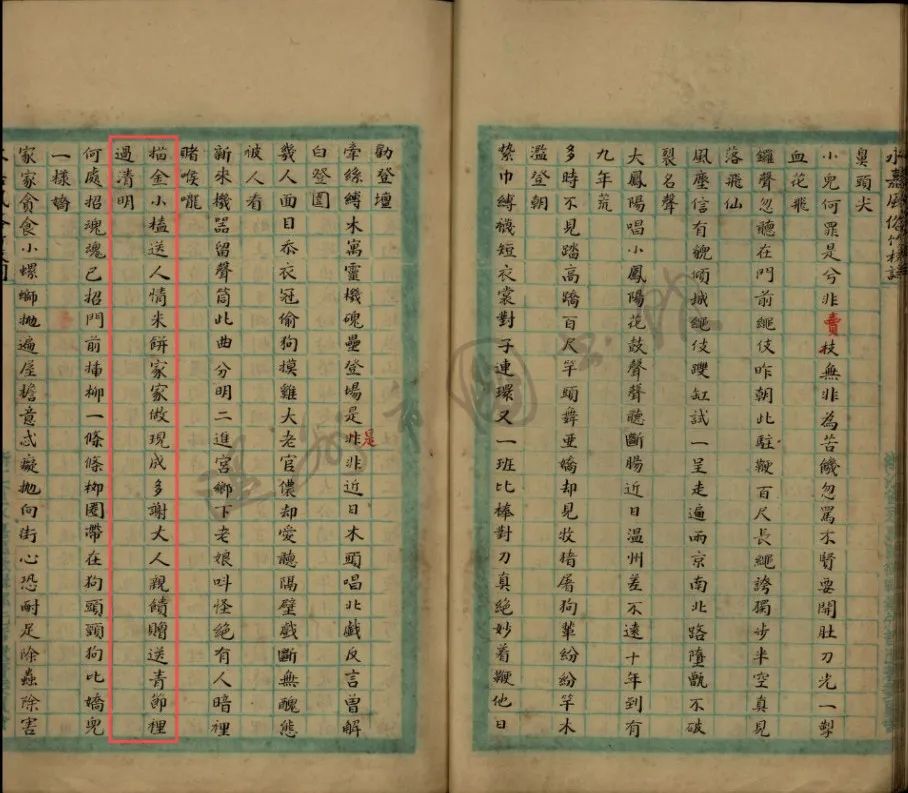 永嘉風俗竹枝詞
臭頭尖
小兒何罪是兮非賣技無非為苦饑忽罵不賢要開肚刀光一掣
血花飛
鑼聲忽聽在門前繩伎昨朝此駐鞭百尺長繩誇獨步半空真見
落飛仙
風塵信有貌傾城繩伎躞缸試一呈走遍兩京南北路墮甑不破
裂名聲
大鳳陽唱小鳳陽花鼓聲聲聽斷腸近日溫州差不遠十年到有
九年荒
多時不見踏高蹻百尺竿頭舞亞嬌却見牧猪屠狗輩紛紛竿木
濫登朝
紮巾縛襪短衣裳對子連環又一班比棒對刀真絕妙着鞭他日
勸登壇
牽絲縛木寓靈機磈壘登場是非是非近日木頭唱北戲反言曾解
白登圍
幾人面目忝衣冠偷狗摸雞大老官儂却愛聽隔壁戲斷無醜態
被人看
新來機噐留聲筒此曲分明二進宮鄉下老娘呌怪絕有人暗裡
賭喉嚨
描金小榼送人情米餅家家做現成多謝大人親饋贈送青節裡
過清明
何處招魂魂已招門前插柳一條條柳圈帶在狗頭頸狗比嬌兒
一樣嬌
家家貪食小螺螄拋遍屋檐意忒癡拋向街心恐耐足除蟲除害